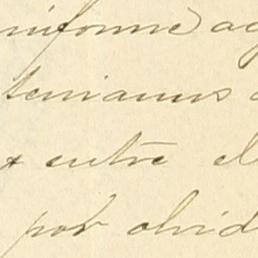 informe ag
teniamos a
entre el
por olvid